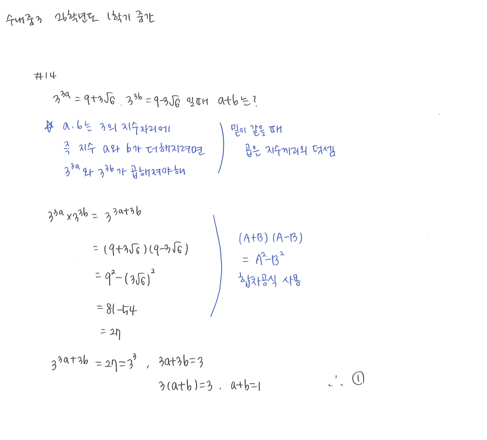 수내중3 26학년도 1학기 중간
#14
3^{3a}=9+3√6, 3^{3b}=9-3√6 일때 a+b는?
☆ a, b는 3의 지수자리에
즉 지수 a와 b가 더해지려면
3^{3a}와 3^{3b}가 곱해져야해
밑이 같을 때
곱은 지수끼리의 덧셈
3^{3a}×3^{3b} = 3^{3a+3b}
= (9+3√6)(9-3√6)
= 9²-(3√6)²
= 81-54
= 27
(A+B)(A-B)
= A²-B²
합차공식 사용
3^{3a+3b} = 27 = 3³, 3a+3b=3
3(a+b)=3, a+b=1 ∴ ①